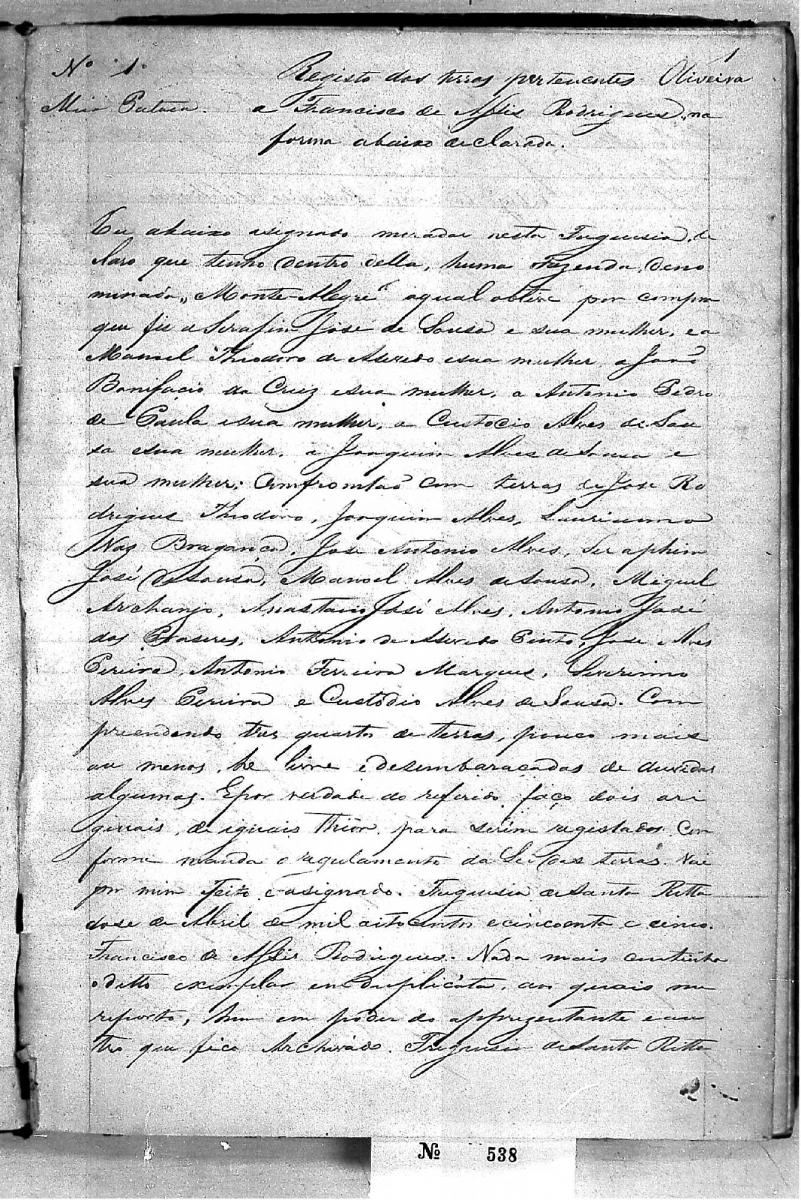 1
Nº 1º Registo das terras pertencentes Oliveira
Meia Pataca. a Francisco de Assis Rodrigues, na
forma abaixo declarada.
Eu abaixo asignado morador nesta Freguesia, de
claro que tenho dentro della, huma Fazenda, deno
minada, "Monte-Alegre" aqual obtive por compra
que fis a Serafim José de Sousa e sua mulher, e a
Manoel Theodoro de Asevedo e sua mulher, a João
Bonifacio da Cruz e sua mulher, a Antonio Pedro
de Paula e sua mulher, a Custodio Alves de Sou
sa e sua mulher, a Joaquim Alves de Sousa e
sua mulher; Confrontão com terras de José Ro
drigues Theodoro, Joaquim Alves,
Bragança, José Antonio Alves, Seraphim
José de Sousa, Manoel Alves de Sousa, Miguel
Archanjo, Anastacio José Alves, Antonio José
dos Praseres, Antonio de Asevedo Pinto, José Alves
Pereira, Antonio Ferreira Marques, Severino
Alves Pereira e Custódio Alves de Sousa. Com
preendendo tres quarto de terras, pouco mais
ou menos, he livre e desembaraçadas de duvidas
algumas. E por verdade do referido, faço dois ori
ginais, de iguais Thior, para serem registados Con
forme manda o regulamento da Lei das terras. Vai
por mim feito e asignado. Freguesia de Santa Ritta
dose de Abril de mil oitocentos e cincoenta e cinco.
Francisco de Assis Rodrigues. Nada mais continha
o ditto exemplar em duplicáta, aos quais me
reporto, hum em poder do apprezentante e ou
tro que fica Archivado. Freguesia de Santa Ritta
Nº 538